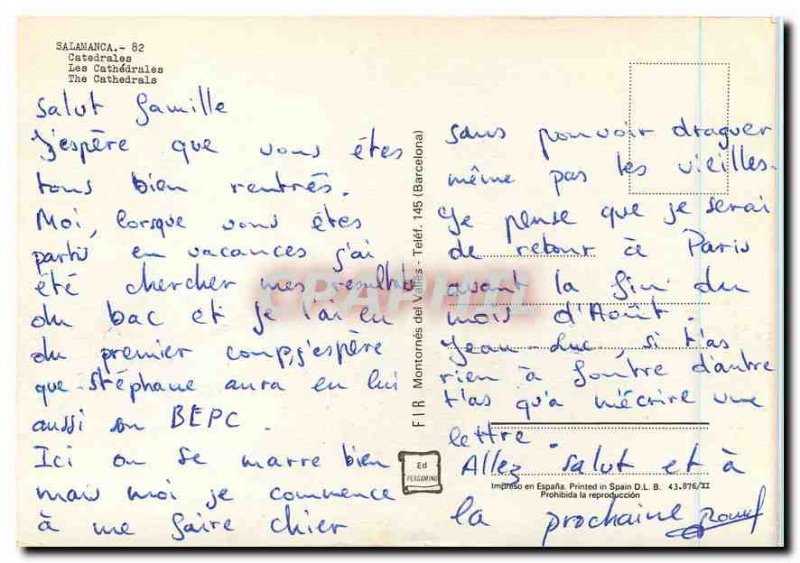 SALAMANCA.- 82
Catedrales
Les Cathédrales
The Cathedrals
Salut famille
J'espère que vous êtes
tous bien rentrés.
Moi, lorsque vous êtes
partis en vacances j'ai
été chercher mes résultats
du bac et je l'ai eu
du premier coup, j'espère
que Stéphane aura eu lui
aussi son BEPC.
Ici on se marre bien
mais moi je commence
à me faire chier
FIR Montornés del Vallés - Teléf. 145 (Barcelona)
Ed
PERGAMINO
sans pouvoir draguer
même pas les vieilles.
Je pense que je serai
de retour à Paris
avant la fin du
mois d'Août.
Jean-Luc, si t'as
rien à foutre d'autre
t'as qu'à m'écrire une
lettre.
Allez salut et à
la prochaine
Impreso en España. Printed in Spain D.L. B. 43.876/XI
Prohibida la reproducción
CPAPHIL